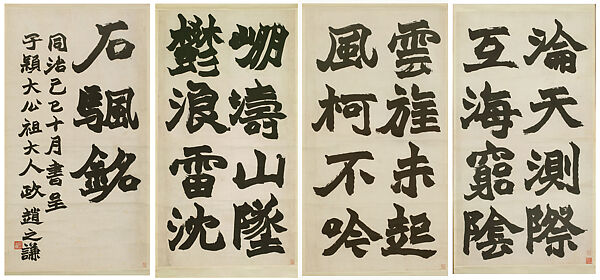 淪天測際
互海窮陰
雲旌未起
風柯不吟
崩濤山墜
鬱浪雷沈
石颿銘
同治己巳十月書呈
子穎大公祖大人政趙之謙